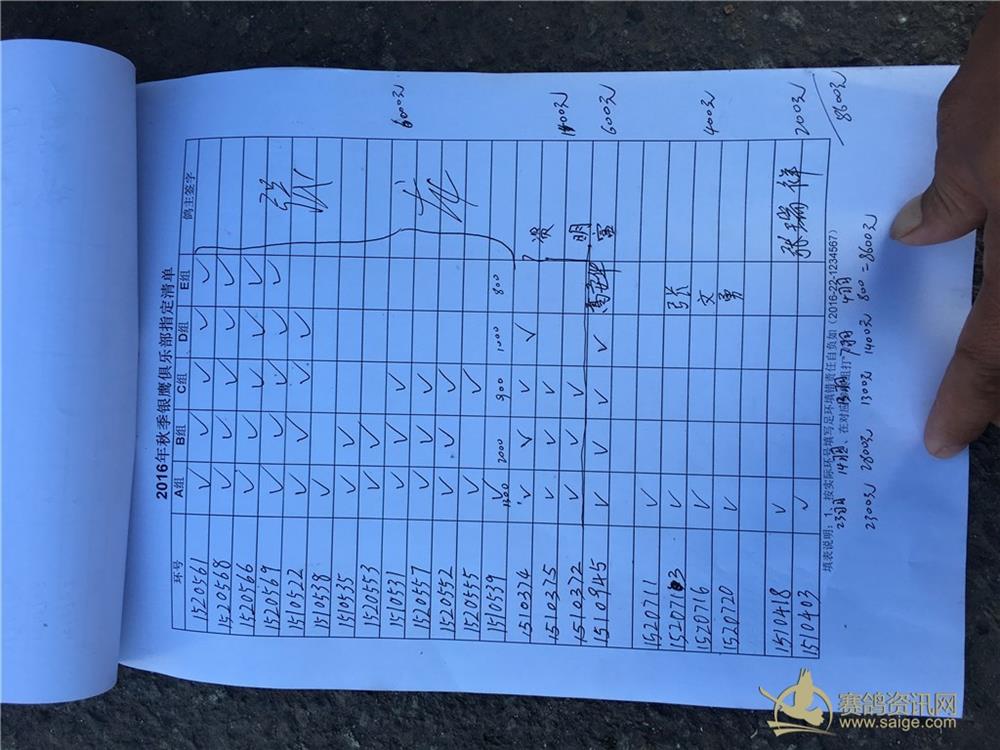 2016年秋季银鹰俱乐部指定清单
环号 A组 B组 C组 D组 E组 鸽主签字
1520561 ✓ ✓ ✓ ✓ ✓
1520568 ✓ ✓ ✓ ✓ ✓
1520566 ✓ ✓ ✓ ✓ ✓
1520569 ✓ ✓ ✓ ✓ ✓ 张
1510522 ✓ ✓ ✓ ✓
1510538 ✓
1510535 ✓ ✓
1520553 ✓ ✓
1510531 ✓ ✓ ✓ 6000元
1520557 ✓ ✓ ✓
1520552 ✓ ✓ ✓
1520555 ✓ ✓
1510539 ✓
1300 2000 900 1000 800
1510334 ✓ ✓ ✓ ✓
1510375 ✓ ✓ ✓ 1400元
1510372 ✓ ✓ ✓ 明
1510945 ✓ ✓ ✓ ✓ 600元
1520711 ✓
1520713 ✓ 张
1520716 ✓ 文 400元
1520720 ✓ 勇
1510418 ✓ 张瑞祥
1510403 ✓ 200元
填表说明：1、按实际环号填写足环填错责任自负如（2016-22-1234567）
23羽 14羽 、在对应 组打 7羽 4羽 8600元
2300元 2800元 1300元 1400元 800=8600元
赛鸽资讯网
www.saige.com